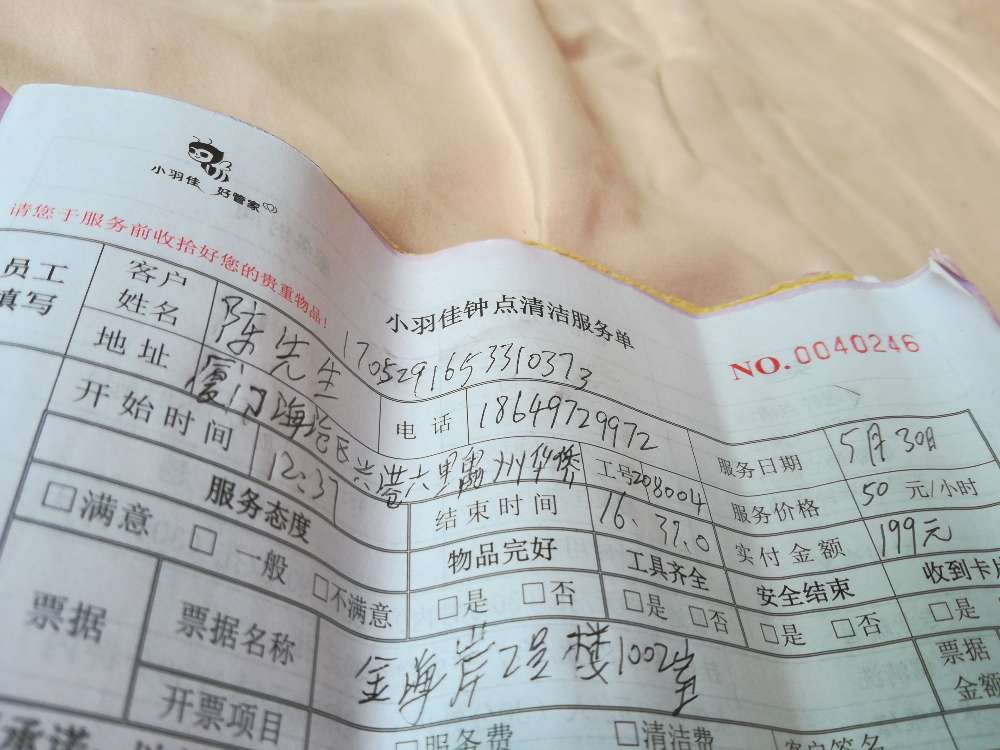 小羽佳 好管家
请您于服务前收拾好您的贵重物品!
小羽佳钟点清洁服务单
NO.0040246
员工填写
客户姓名 陈先生 1705291653310373
电话 18649729972
服务日期 5月30日
地址 厦门海沧区兴港六里 州华
工号 208004
服务价格 50 元/小时
开始时间 12:37
结束时间 16.37.0
实付金额 199元
服务态度 物品完好 工具齐全 安全结束 收到卡片
□满意 □一般 □不满意 □是 □否 □是 □否 □是 □否 □是
票据 票据名称 金海岸2号楼1002室 票据金额
开票项目 □服务费 □清洁费 客户签名